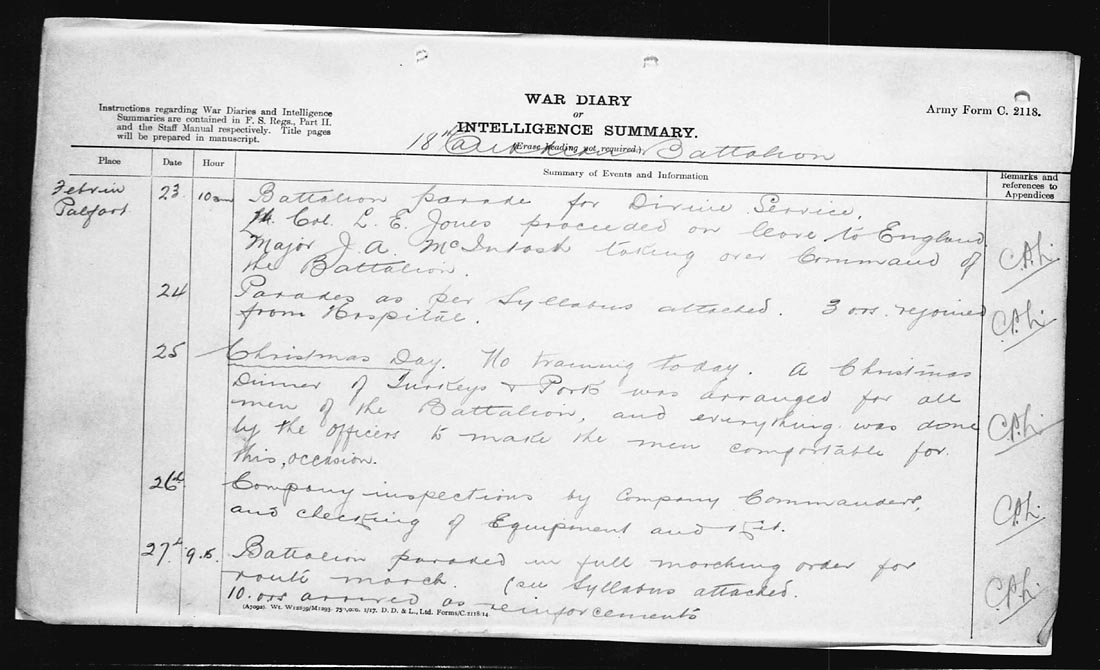 WAR DIARY
or
INTELLIGENCE SUMMARY.
(Erase heading not required.)
Instructions regarding War Diaries and Intelligence
Summaries are contained in F. S. Regs., Part II.
and the Staff Manual respectively. Title pages
will be prepared in manuscript.
Army Form C. 2118.
18th Canadian Battalion
Place Date Hour Summary of Events and Information Remarks and references to Appendices
Febvin
Palfart
23 10am Battalion parade for Divine Service.
Lt. Col. L. E. Jones proceeded on leave to England
Major J. A. McIntosh taking over Command of
the Battalion.
24 Parades as per Syllabus attached. 3 o.rs. rejoined
from Hospital.
25 Christmas Day. No training today. A Christmas
Dinner of Turkeys & Pork was arranged for all
men of the Battalion, and everything was done
by the officers to make the men comfortable for
this, occasion.
26th Company inspections by Company Commanders,
and checking of Equipment and Kit.
27th 9. Battalion paraded in full marching order for
route march. (see Syllabus attached.
10. ors arrived as reinforcements
D. D. & L., Ltd. Forms/C.2118/14.